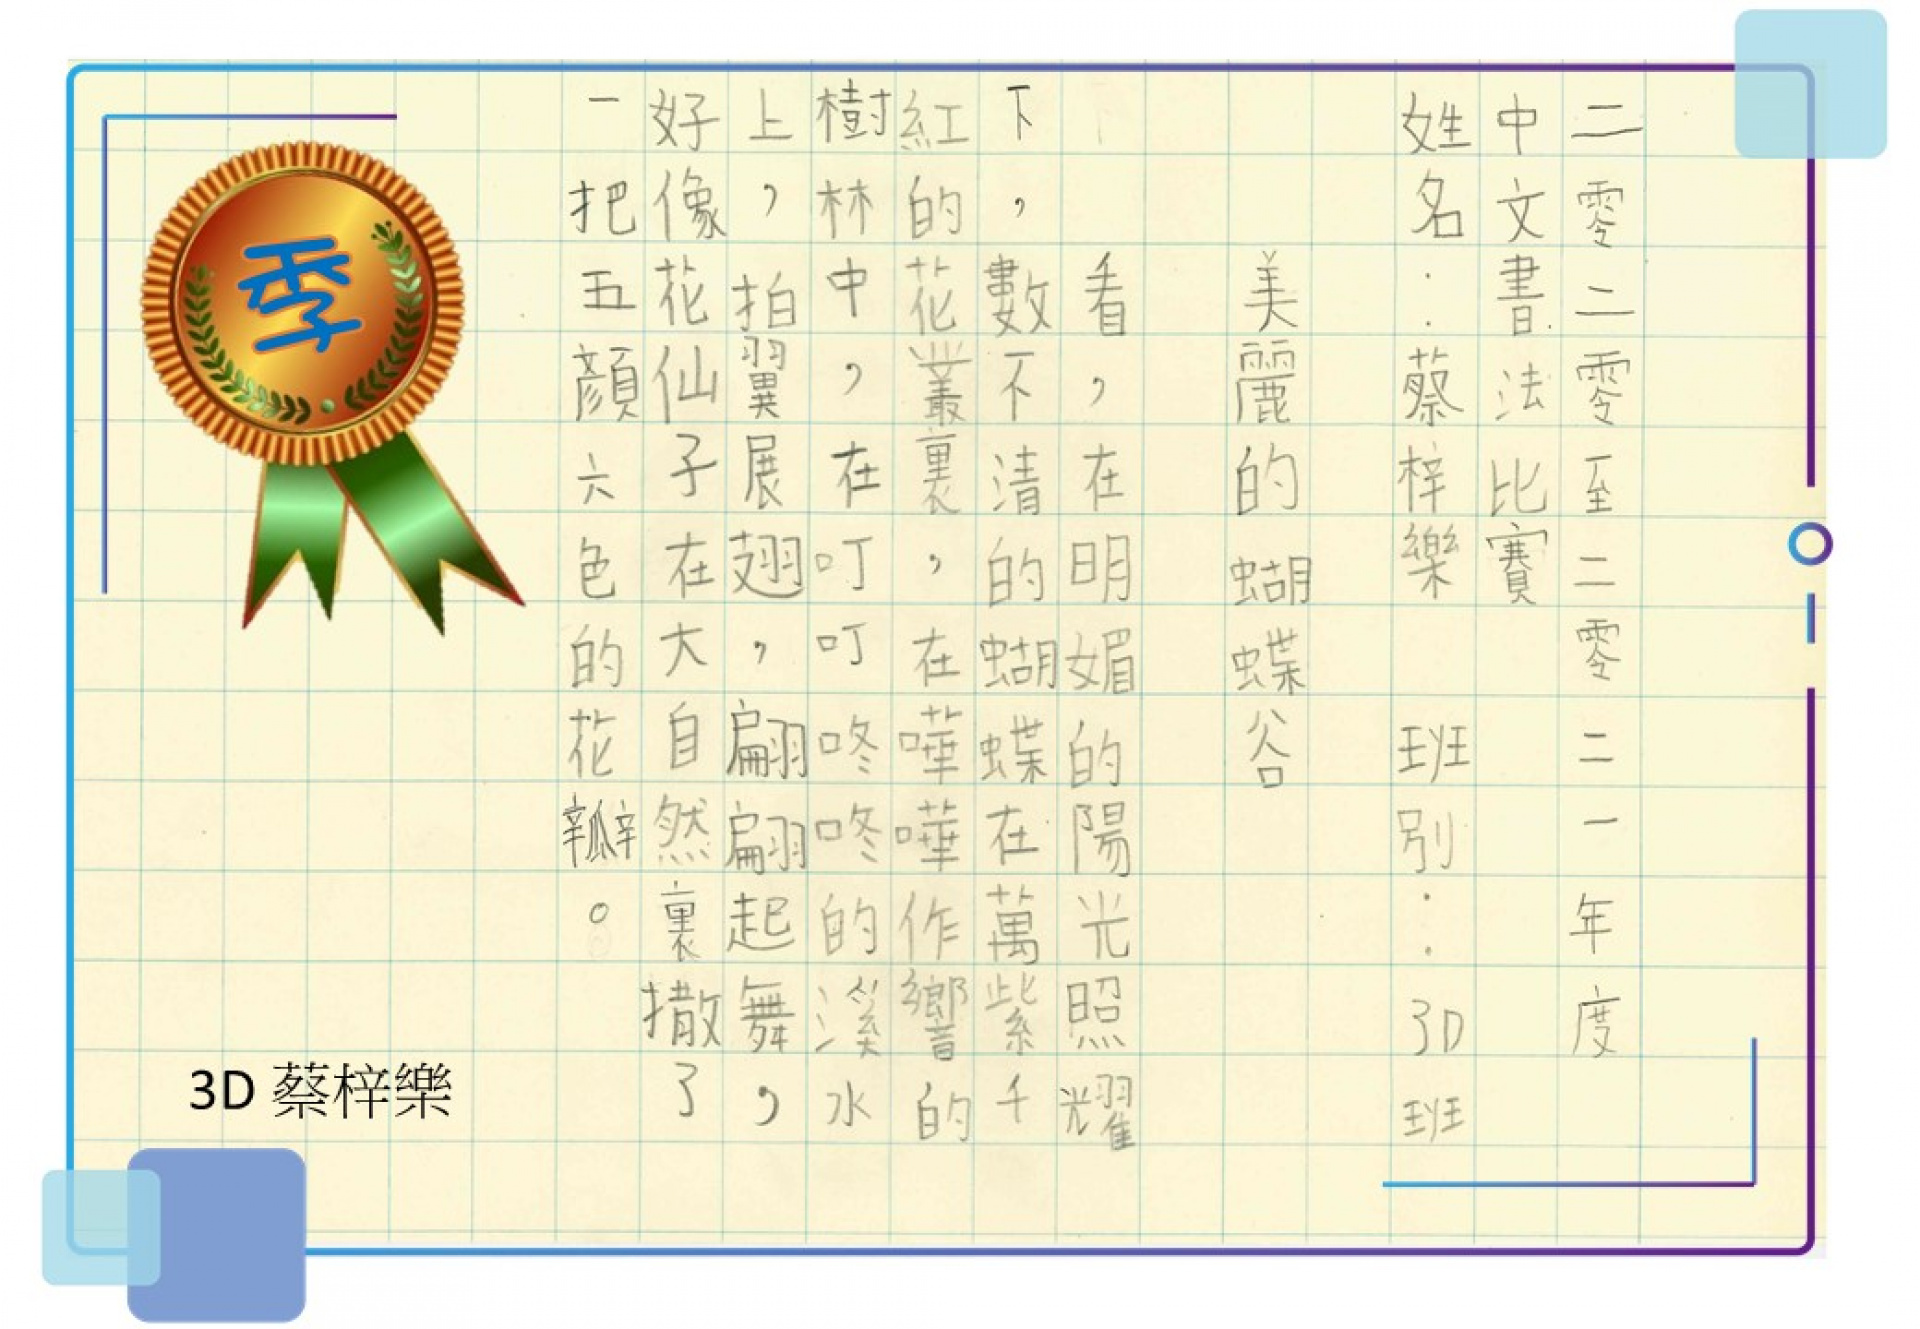 二零二零至二零二一年度
中文書法比賽
姓名：蔡梓樂 班別：3D班
美麗的蝴蝶谷
看，在明媚的陽光照耀
下，數不清的蝴蝶在萬紫千
紅的花叢裏，在嘩嘩作響的
樹林中，在叮叮咚咚的溪水
上，拍翼展翅，翩翩起舞，
好像花仙子在大自然裏撒了
一把五顏六色的花瓣。
季
3D 蔡梓樂